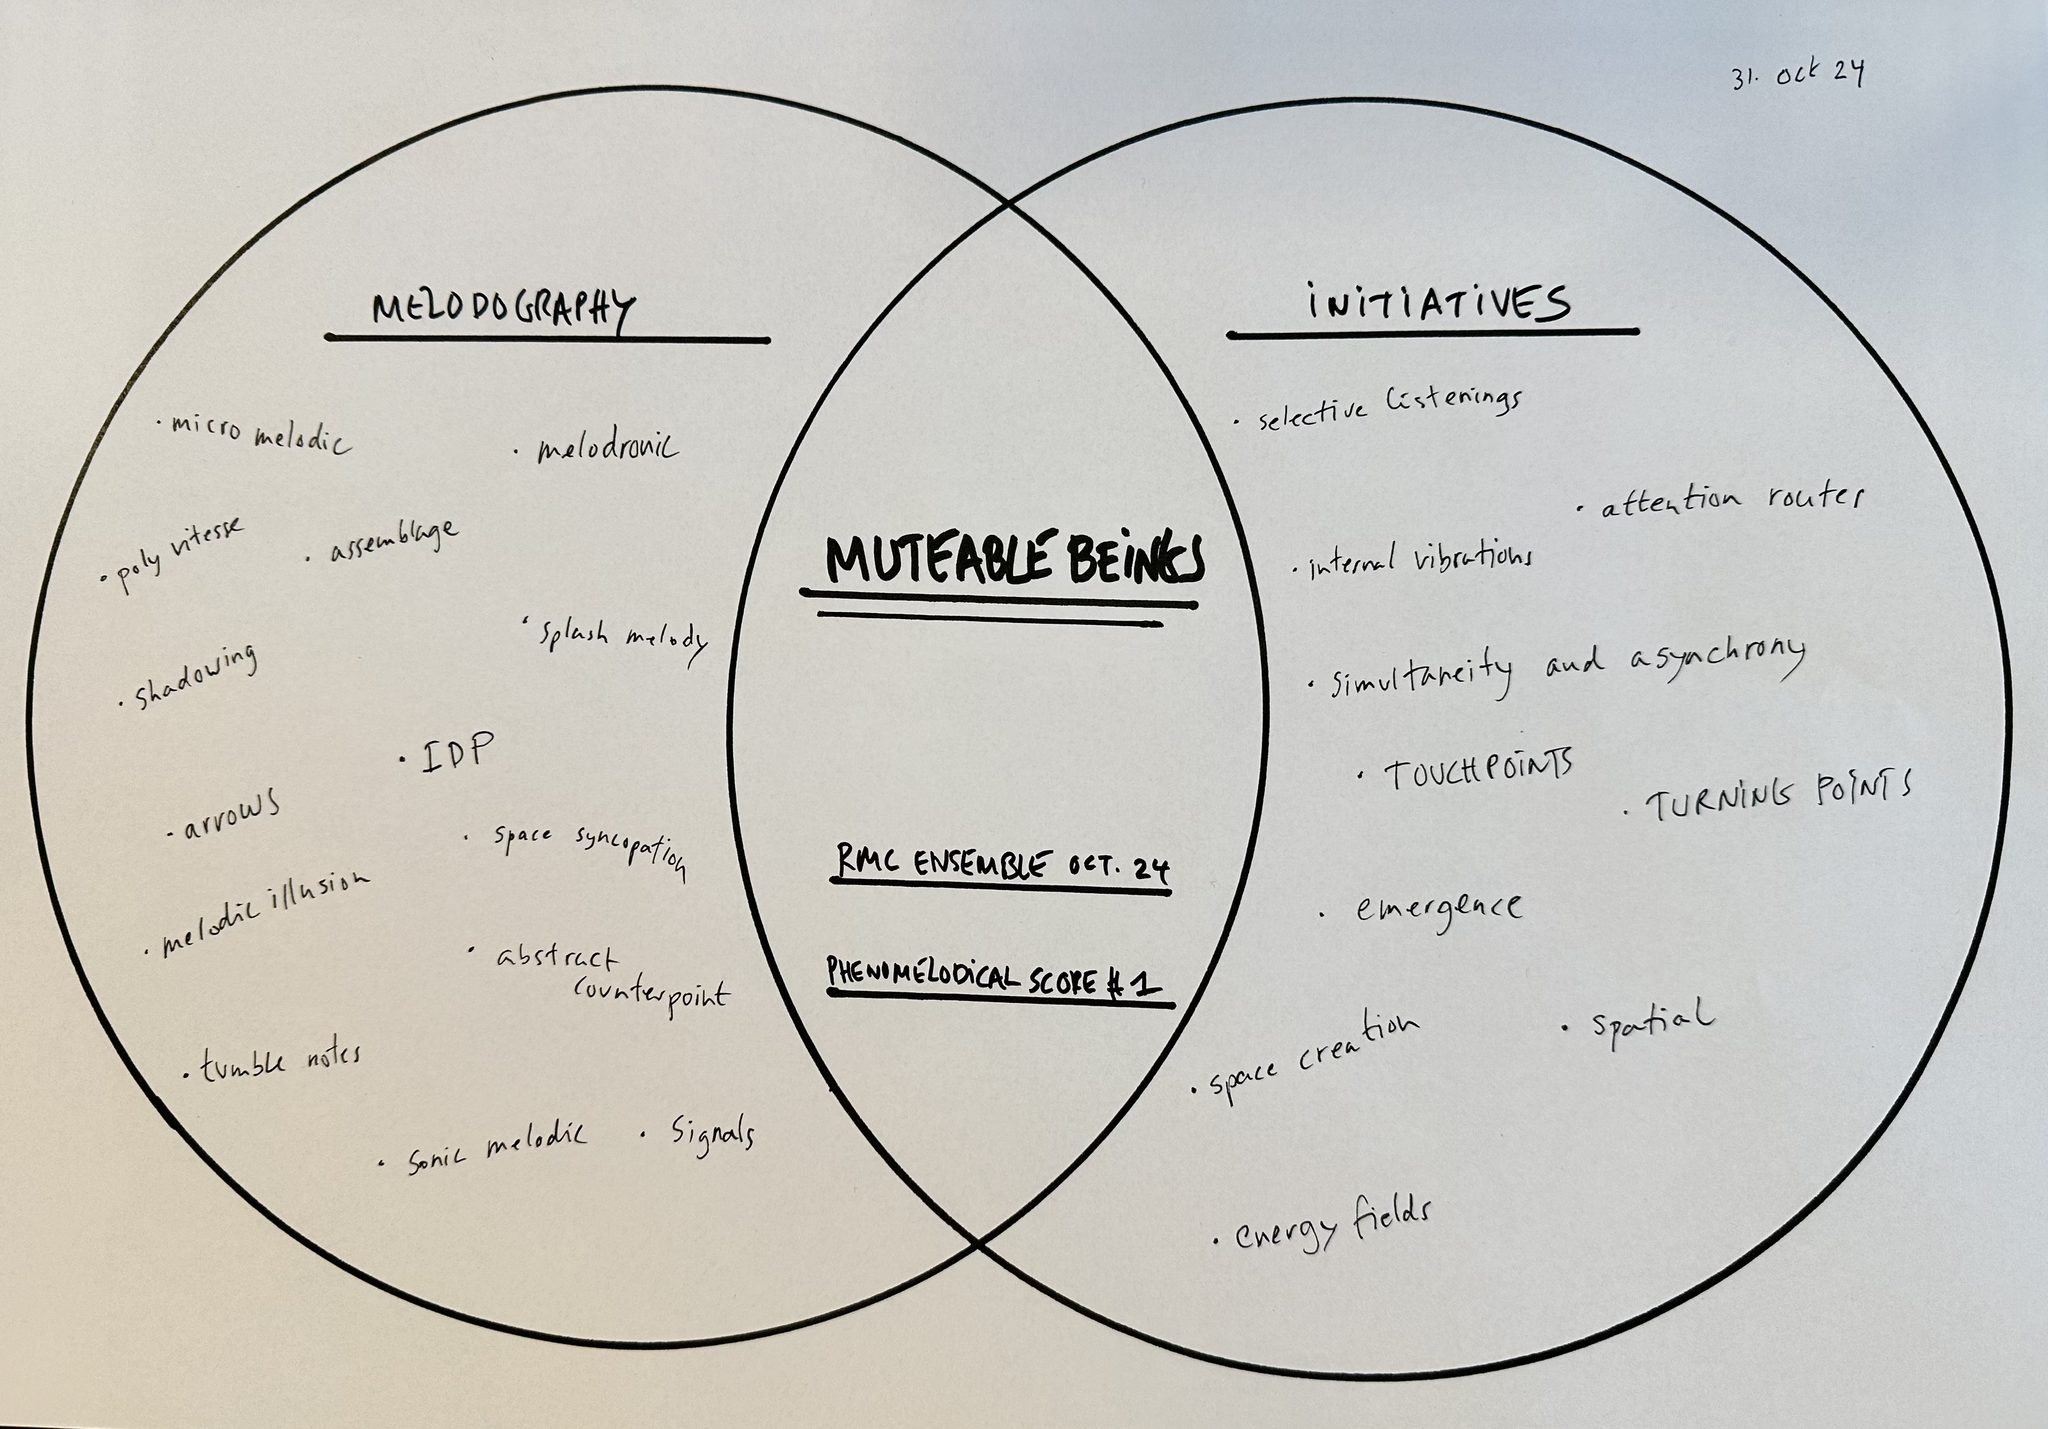 31. oct 24
MELODOGRAPHY
· micro melodic
· melodronic
· poly vitesse
· assemblage
· splash melody
· shadowing
· IDP
· arrows
· space syncopation
· melodic illusion
· abstract
counterpoint
· tumble notes
· sonic melodic
· signals
MUTEABLE BEINGS
RMC ENSEMBLE OCT. 24
PHENOMELODICAL SCORE # 1
INITIATIVES
· selective listenings
· attention router
· internal vibrations
· simultaneity and asynchrony
· TOUCHPOINTS
· TURNING POINTS
· emergence
· spatial
· space creation
· energy fields